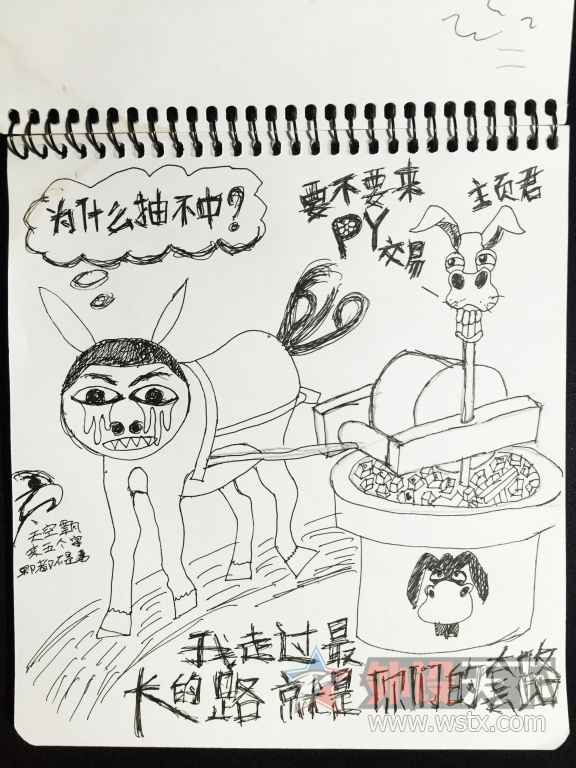 为什么抽不中？
要不要来
PY
交易
主页君
天空飘
来五个字
那都不是事
我走过最
长的路就是你们的套路
www.wstx.com